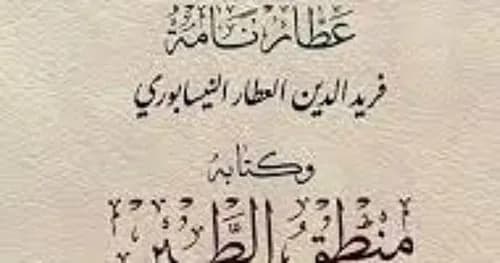 عطار نامة
فريد الدين العطار النيسابوري
وكتابه
منطق الطير